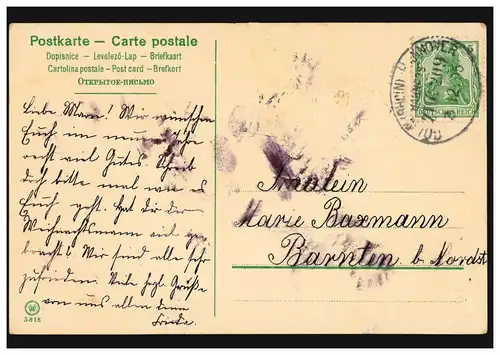 Postkarte — Carte postale
Dopisnice — Levelező-Lap — Briefkaart
Cartolina postale - Post card - Brefkort
Открытое-письмо
Liebe Marie! Wir wünschen
Euch im neuen Jahre
recht viel Gutes. Schreib
doch bitte mal wie es
Euch geht. Hat dir der
Weihnachtsmann viel ge-
bracht? Wir sind alle sehr
zufrieden. Viele hzgl. Grüße
von uns allen deine
Frieda.
5818
DEUTSCHES REICH
5
Fräulein
Marie Baxmann
Barnten b. Nordst